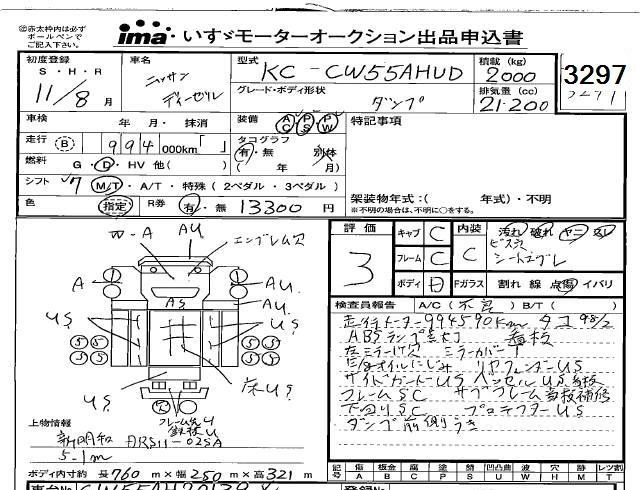 ㊟赤太枠内は必ず
ボールペンで
ご記入下さい。
ima いすゞモーターオークション出品申込書
初度登録 車名 型式 KC-CW55AHUD 積載 (kg) 2000
S・H・R
11/8月 ニッサン ディーゼル グレード・ボディ形状 ダンプ 排気量 (cc) 21200
3297
車検 年 月・抹消 装備 AC PS PW 特記事項
走行 B 994 000km「 」 タコグラフ 有・無 別体 ( 年 月)
燃料 G・D・HV 他( )
シフト 7 M/T・A/T・特殊(2ペダル・3ペダル) 架装物年式:( 年式)・不明
※不明の場合は、不明に○をする。
色 指定 R券 有・無 13300円
評価 3 キャブ C 内装 C 汚れ 破れ ヤニ
フレーム C ビス穴 シート
ボディ D Fガラス 割れ 線 点傷 イバリ
検査員報告 A/C(不良) B/T( )
走行メーター 994590km タコ 98/2
ABSランプ点灯 看板
左ミラー欠 ミラーカバー
オイルにじみ リヤフェンダーUS
サイドガードUS ベッセルUS
フレームSC サブフレーム 補修
下回りSC プロテクターUS
ダンプ
W-A AU エンブレム穴
A AU
AS AU
US US
S S S S
S S S S
US 床US
フレーム先U
上物情報
新明和 DRS11-02SA
5-1m
ボディ内寸約 長760m×幅250m×高321m
記号 傷 板金 腐 塗 錆 凹凸曲 波 穴 無 レス割
A B C P S U W H M T